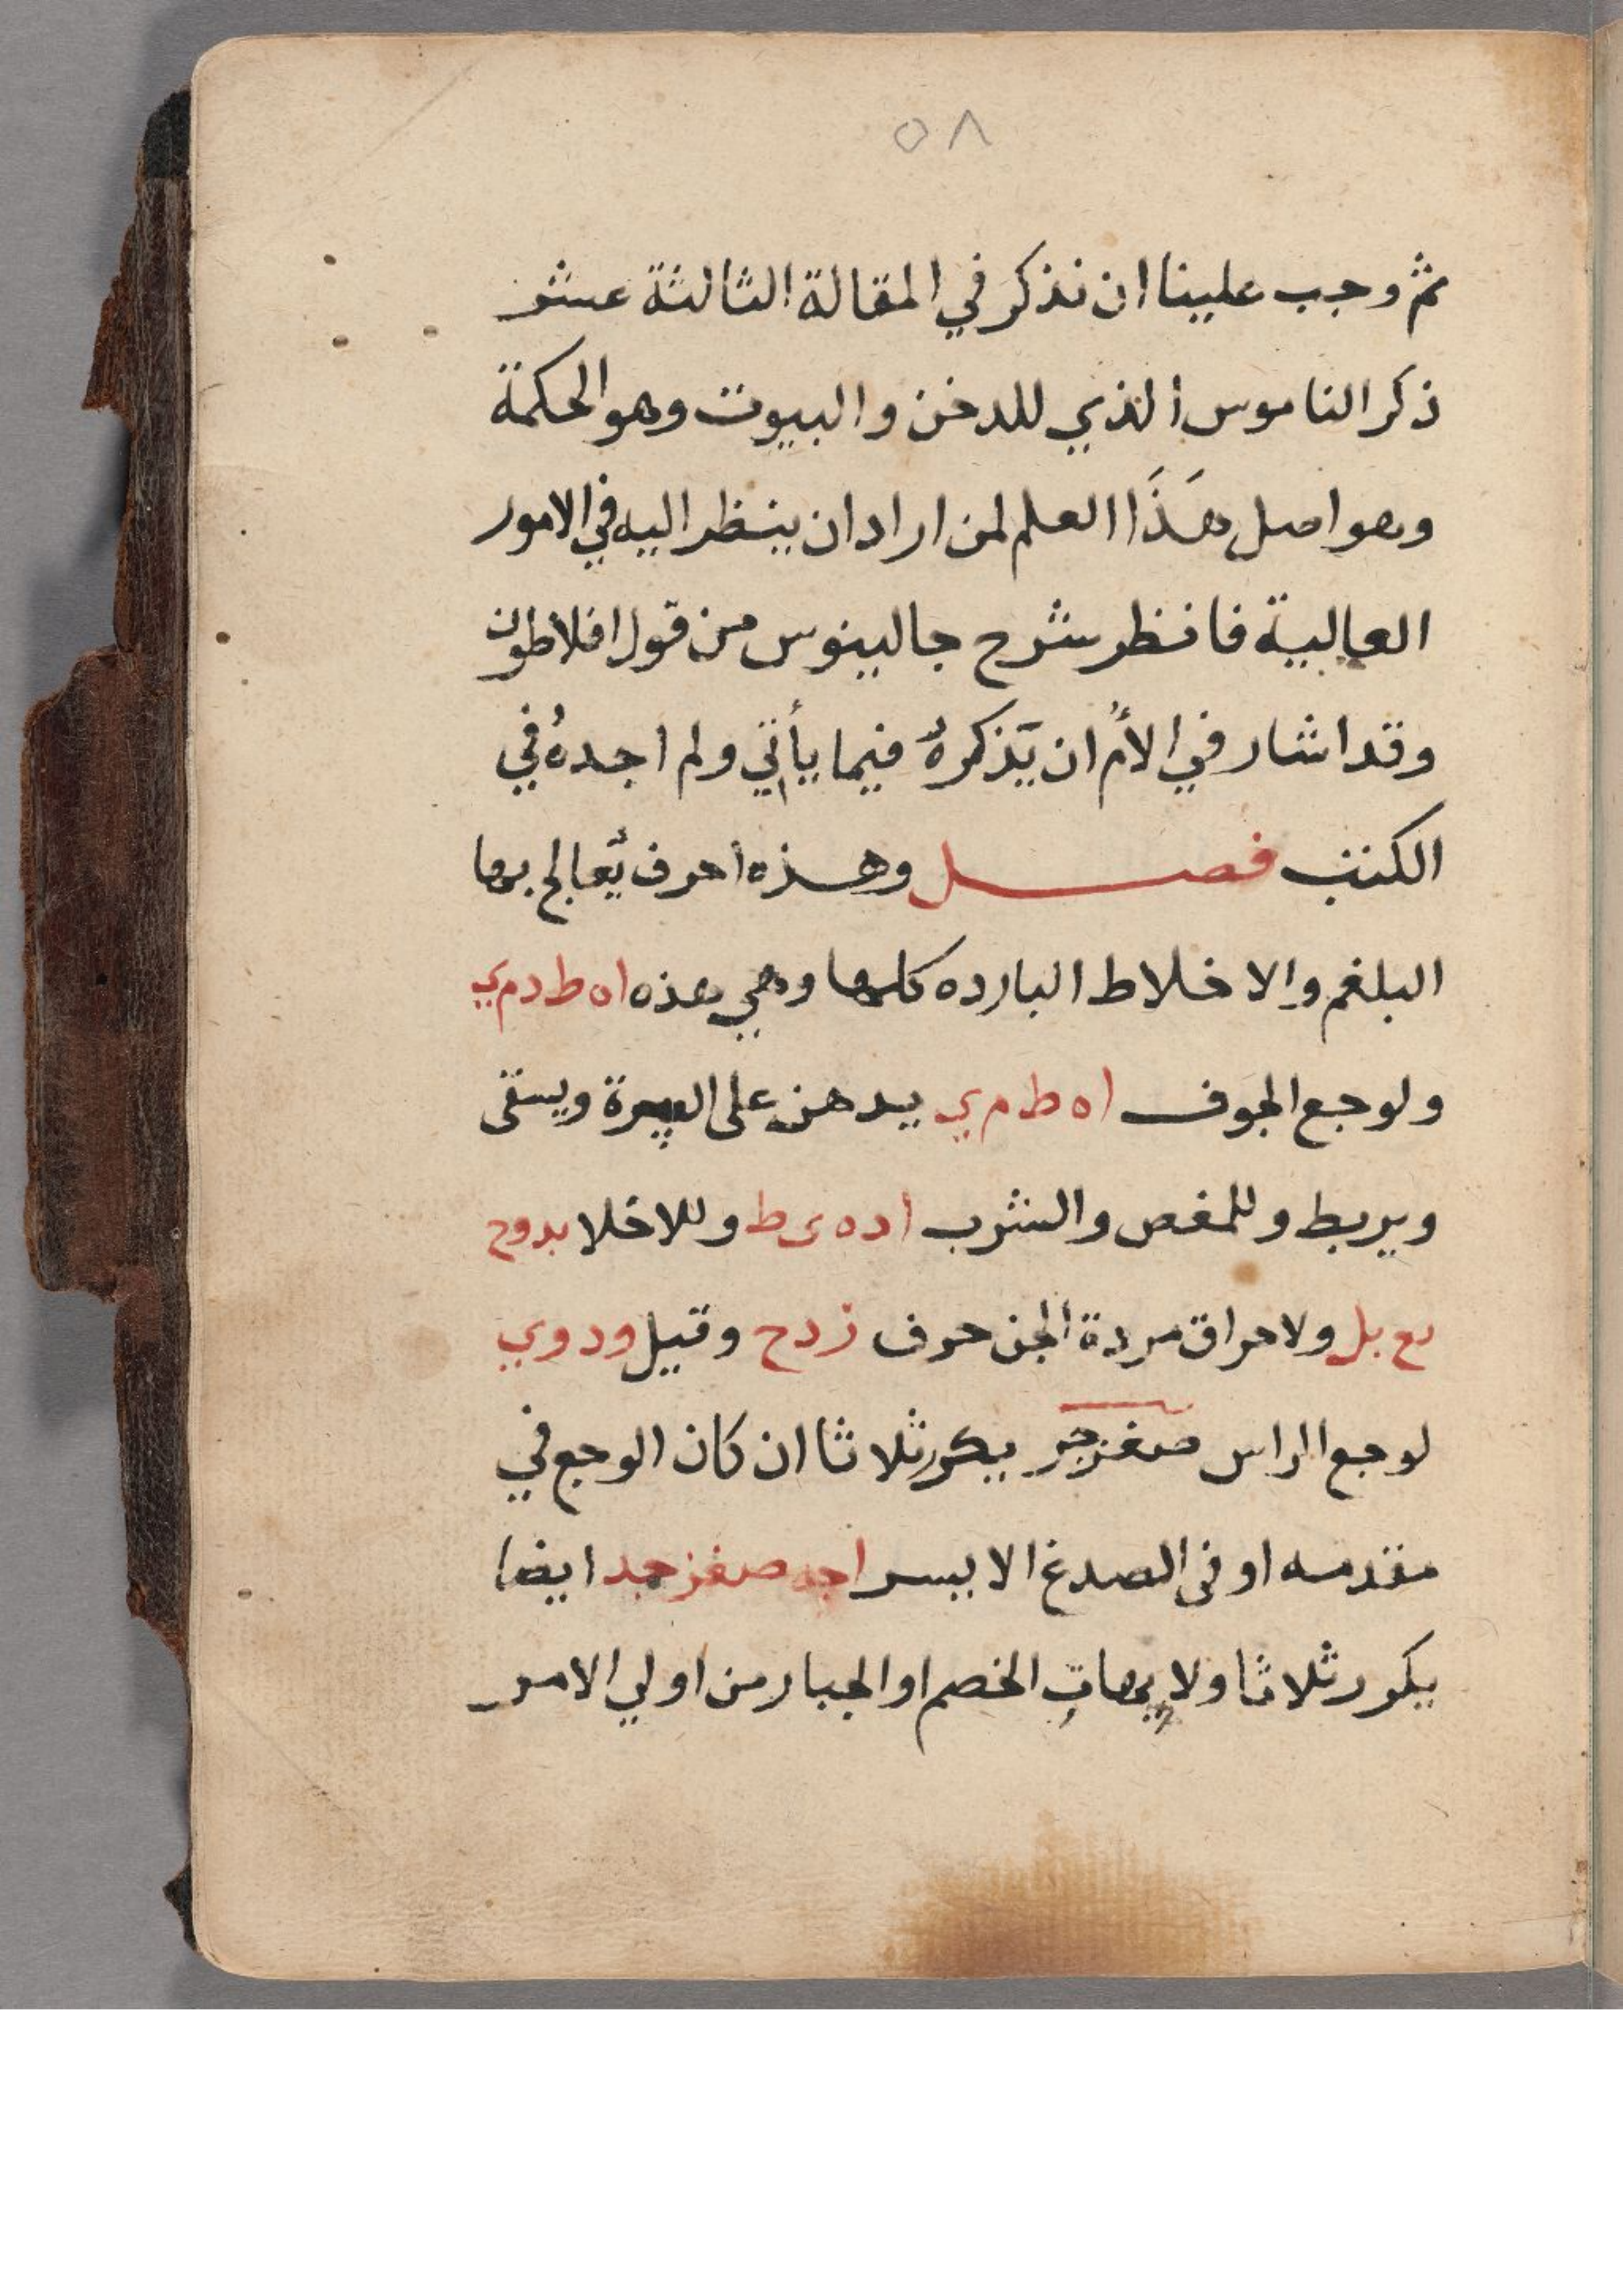 ٥٨
ثم وجب علينا ان نذكر في المقالة الثالثة عشر
ذكر الناموس الذي للدخن والبيوت وهو الحكمة
وهو اصل هَذَا العلم لمن اراد ان ينظر اليه في الامور
العالية فانظر شرح جالينوس من قول افلاطون
وقد اشار في الأم ان يذكرهُ فيما يأتي ولم اجدهُ في
الكتب فصل وهذه احرف يُعالج بها
البلغم والاخلاط البارده كلها وهي هذه اه ط د م ي
ولوجع الجوف اه ط م ي يدهن على السرة ويسقى
ويربط وللمغص والشرب اده ى ط وللاخلا بدوح
بل ولاحراق مردة الجن حرف زدح وقيل ودوي
لوجع الراس صغزجر يكرر ثلاثا ان كان الوجع في
مقدمه او في الصدغ الايسر اجد صغزجد ايضا
يكرر ثلاثا ولابهات الخصم او الجبار من اولي الامر